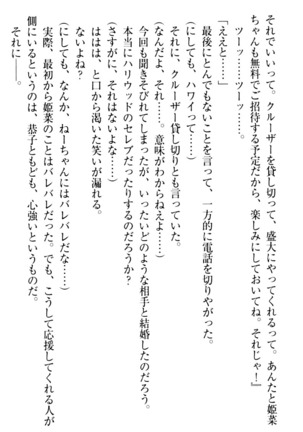 それでいいって。クルーザーを貸し切って、盛大にやってくれるって。あんたと姫菜
ちゃんも無料でご招待する予定だから、楽しみにしておいてね。それじゃ！』
ツーッ……ツーッ……。
「ええと……」
最後にとんでもないことを言って、一方的に電話を切りやがった。
(にしても、ハワイって……)
それに、クルーザー貸し切りとも言っていた。
(なんだよ、それ……。意味がわからねえよ……)
今回も聞きそびれてしまったが、いったいどのような相手と結婚したのだろう。
本当にハリウッドのセレブだったりするのだろうか？
(さすがに、それはないよな……)
ははは、と口から渇いた笑いが漏れる。
ないよね？
(にしても、なんか、ねーちゃんにはバレバレだな……)
実際、最初から姫菜のことはバレバレだった。でも、こうして応援してくれる人が
側にいるというのは、恭子ともども、心強いというものだ。
それに――。